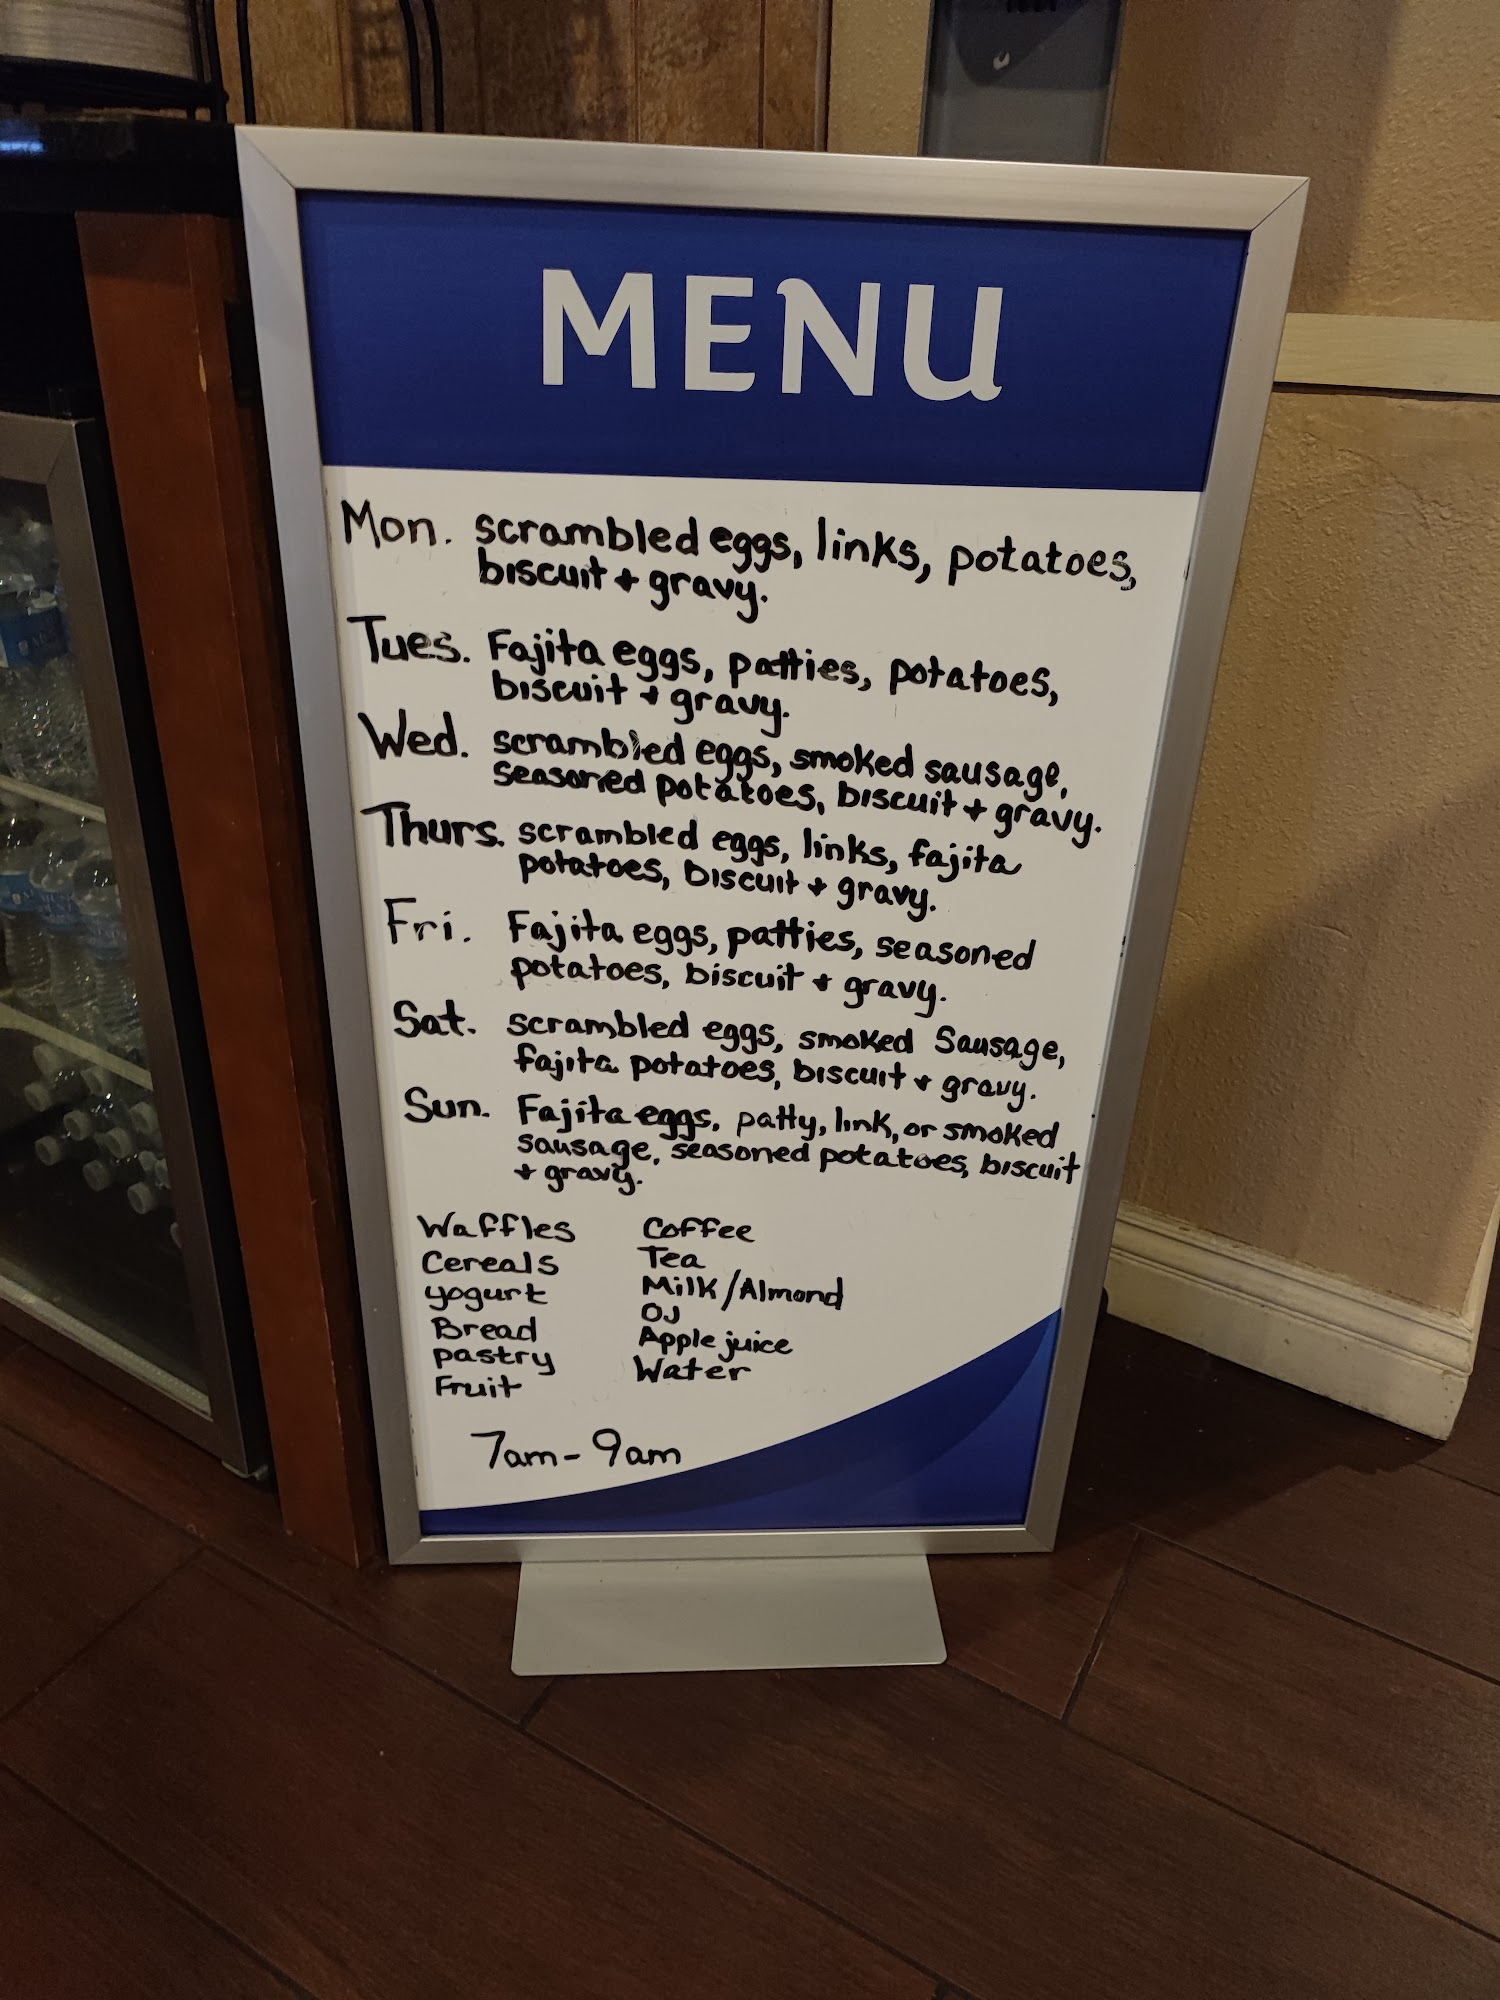 MENU
Mon. scrambled eggs, links, potatoes,
biscuit + gravy.
Tues. Fajita eggs, patties, potatoes,
biscuit + gravy.
Wed. scrambled eggs, smoked sausage,
seasoned potatoes, biscuit + gravy.
Thurs. scrambled eggs, links, fajita
potatoes, biscuit + gravy.
Fri. Fajita eggs, patties, seasoned
potatoes, biscuit + gravy.
Sat. scrambled eggs, smoked Sausage,
fajita potatoes, biscuit + gravy.
Sun. Fajita eggs, patty, link, or smoked
sausage, seasoned potatoes, biscuit
+ gravy.
Waffles
Cereals
yogurt
Bread
pastry
Fruit
Coffee
Tea
Milk/Almond
OJ
Apple juice
Water
7am-9am